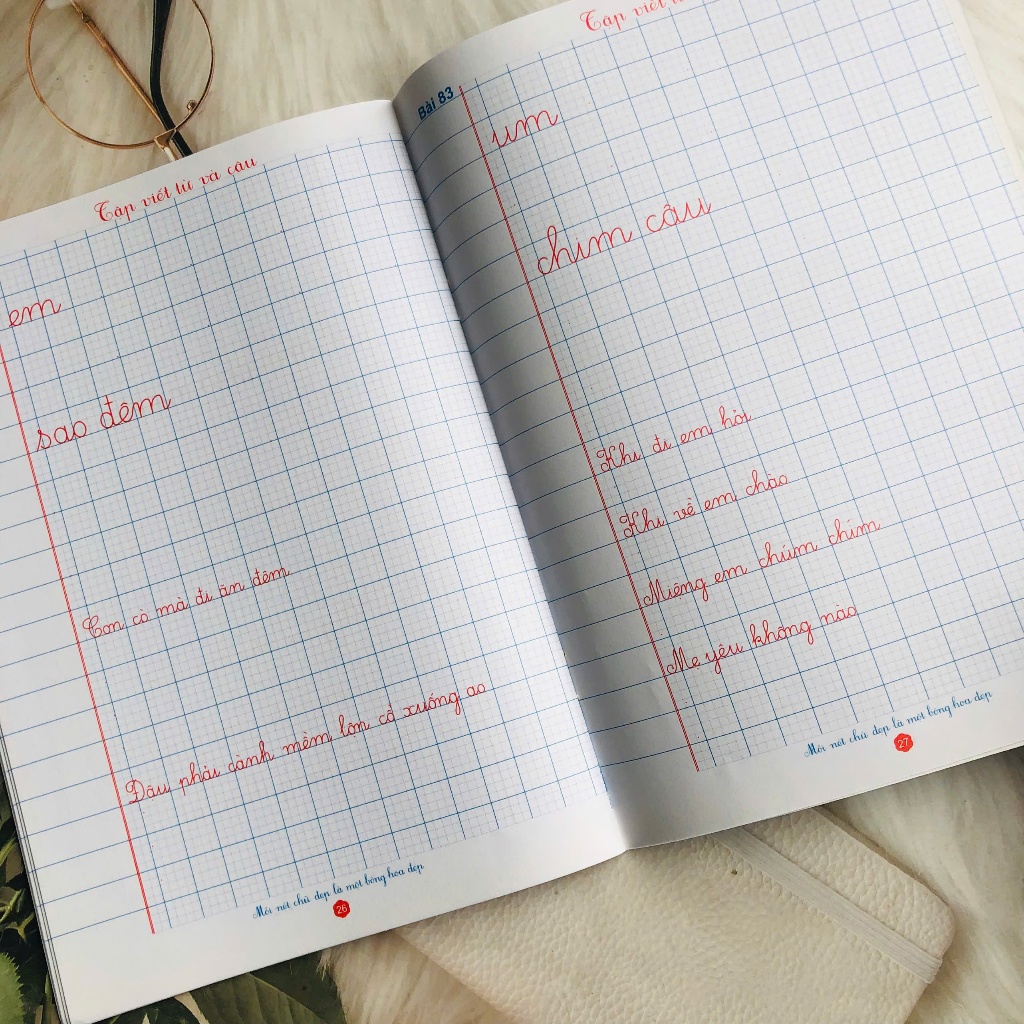 Tập viết từ và câu
em
sao đêm
Con cò mà đi ăn đêm
Đậu phải cành mềm lộn cổ xuống ao
Mỗi nét chữ đẹp là một bông hoa đẹp
26
Tập viết từ
Bài 83
um
chim câu
Khi đi em hỏi
Khi về em chào
Miệng em chúm chím
Mẹ yêu không nào
Mỗi nét chữ đẹp là một bông hoa đẹp
27